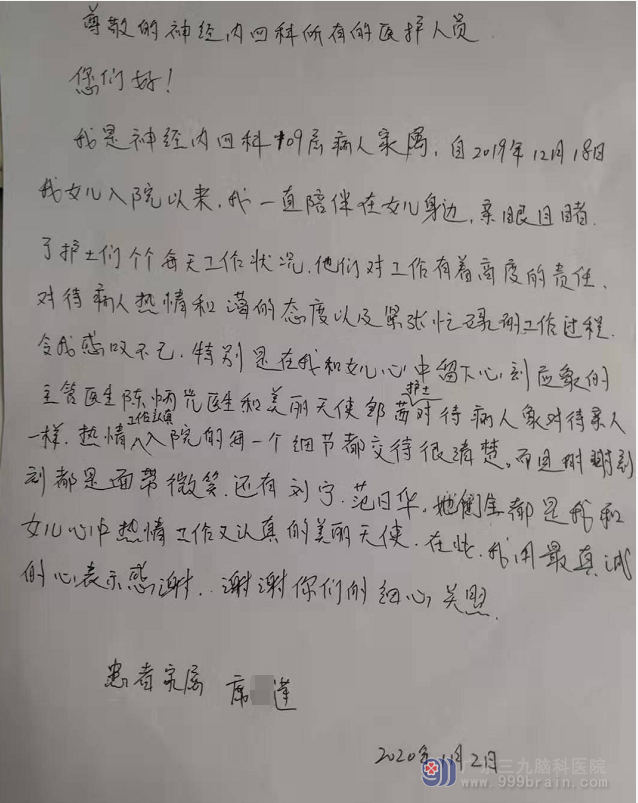 尊敬的神经内四科所有的医护人员
您们好！
我是神经内四科109床病人家属，自2019年12月18日
我女儿入院以来，我一直陪伴在女儿身边，亲眼目睹
了护士们个个每天工作状况，他们对工作有着高度的责任，
对待病人热情和蔼的态度以及紧张忙碌的工作过程
令我感叹不已，特别是在我和女儿心中留下心刻应象的
主管医生陈炳光医生和美丽天使邹茜护士对待病人象对待亲人
一样，热情工作认真入院的每一个细节都交待很清楚。而且时时刻
刻都是面带微笑，还有刘宁，范日华，她们全都是我和
女儿心中热情工作又认真的美丽天使，在此，我用最真诚
的心表示感谢，谢谢你们的细心关照
患者家属 席 莲
2020年1月2日
广东三九脑科医院
www.999brain.com